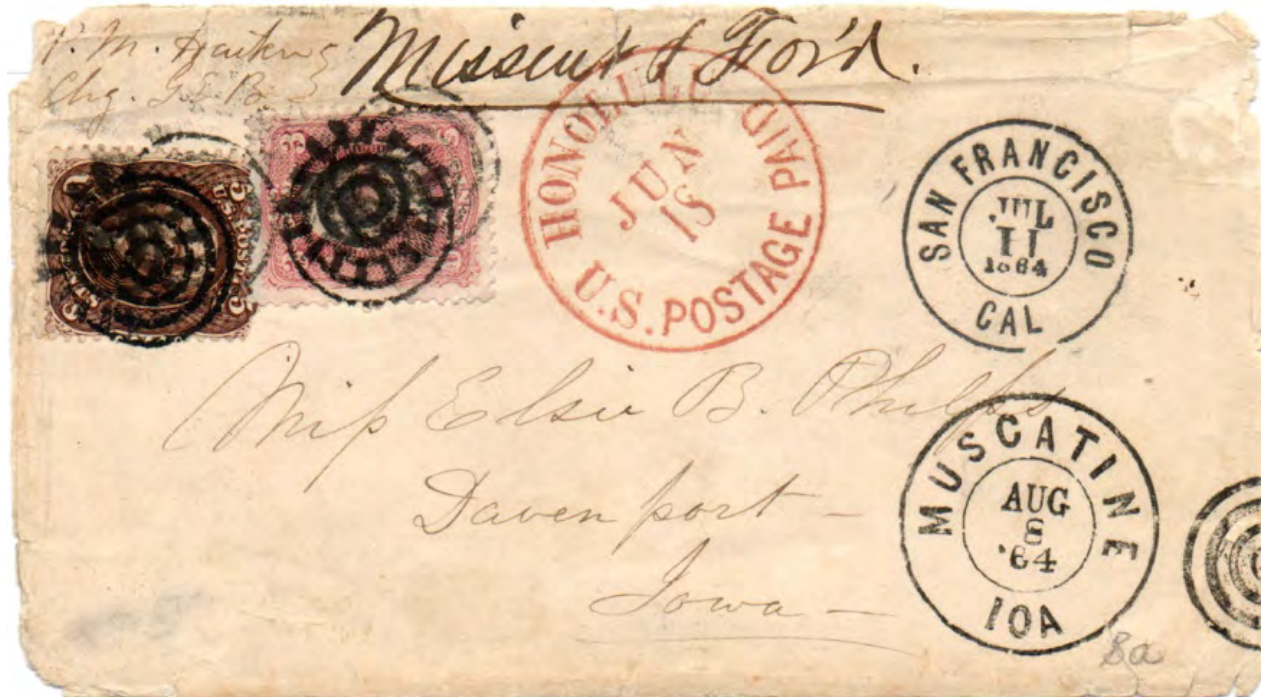 Missent & For'd.
HONOLULU
JUN
18
U.S. POSTAGE PAID
SAN FRANCISCO
JUL
11
1864
CAL
Miss Elsie B. Phelps
Davenport –
Iowa –
MUSCATINE
AUG
8
'64
IOA